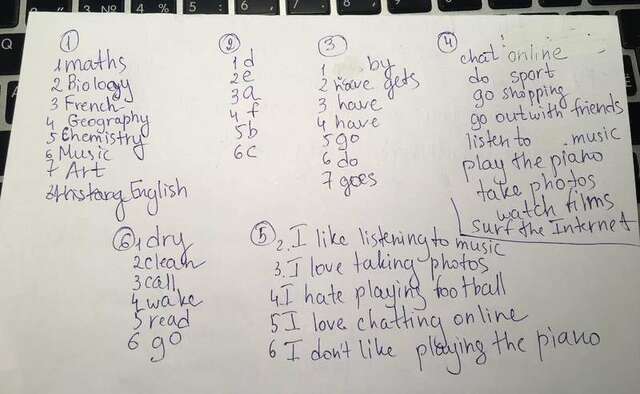 1
1 maths
2 Biology
3 French
4 Geography
5 Chemistry
6 Music
7 Art
English
2
1 d
2 e
3 a
4 f
5 b
6 c
3
1 by
2 gets
3 have
4 have
5 go
6 do
7 goes
4
chat online
do sport
go shopping
go out with friends
listen to music
play the piano
take photos
watch films
surf the Internet
6
1 dry
2 clean
3 call
4 wake
5 read
6 go
5
2. I like listening to music
3. I love taking photos
4 I hate playing football
5 I love chatting online
6 I don't like playing the piano